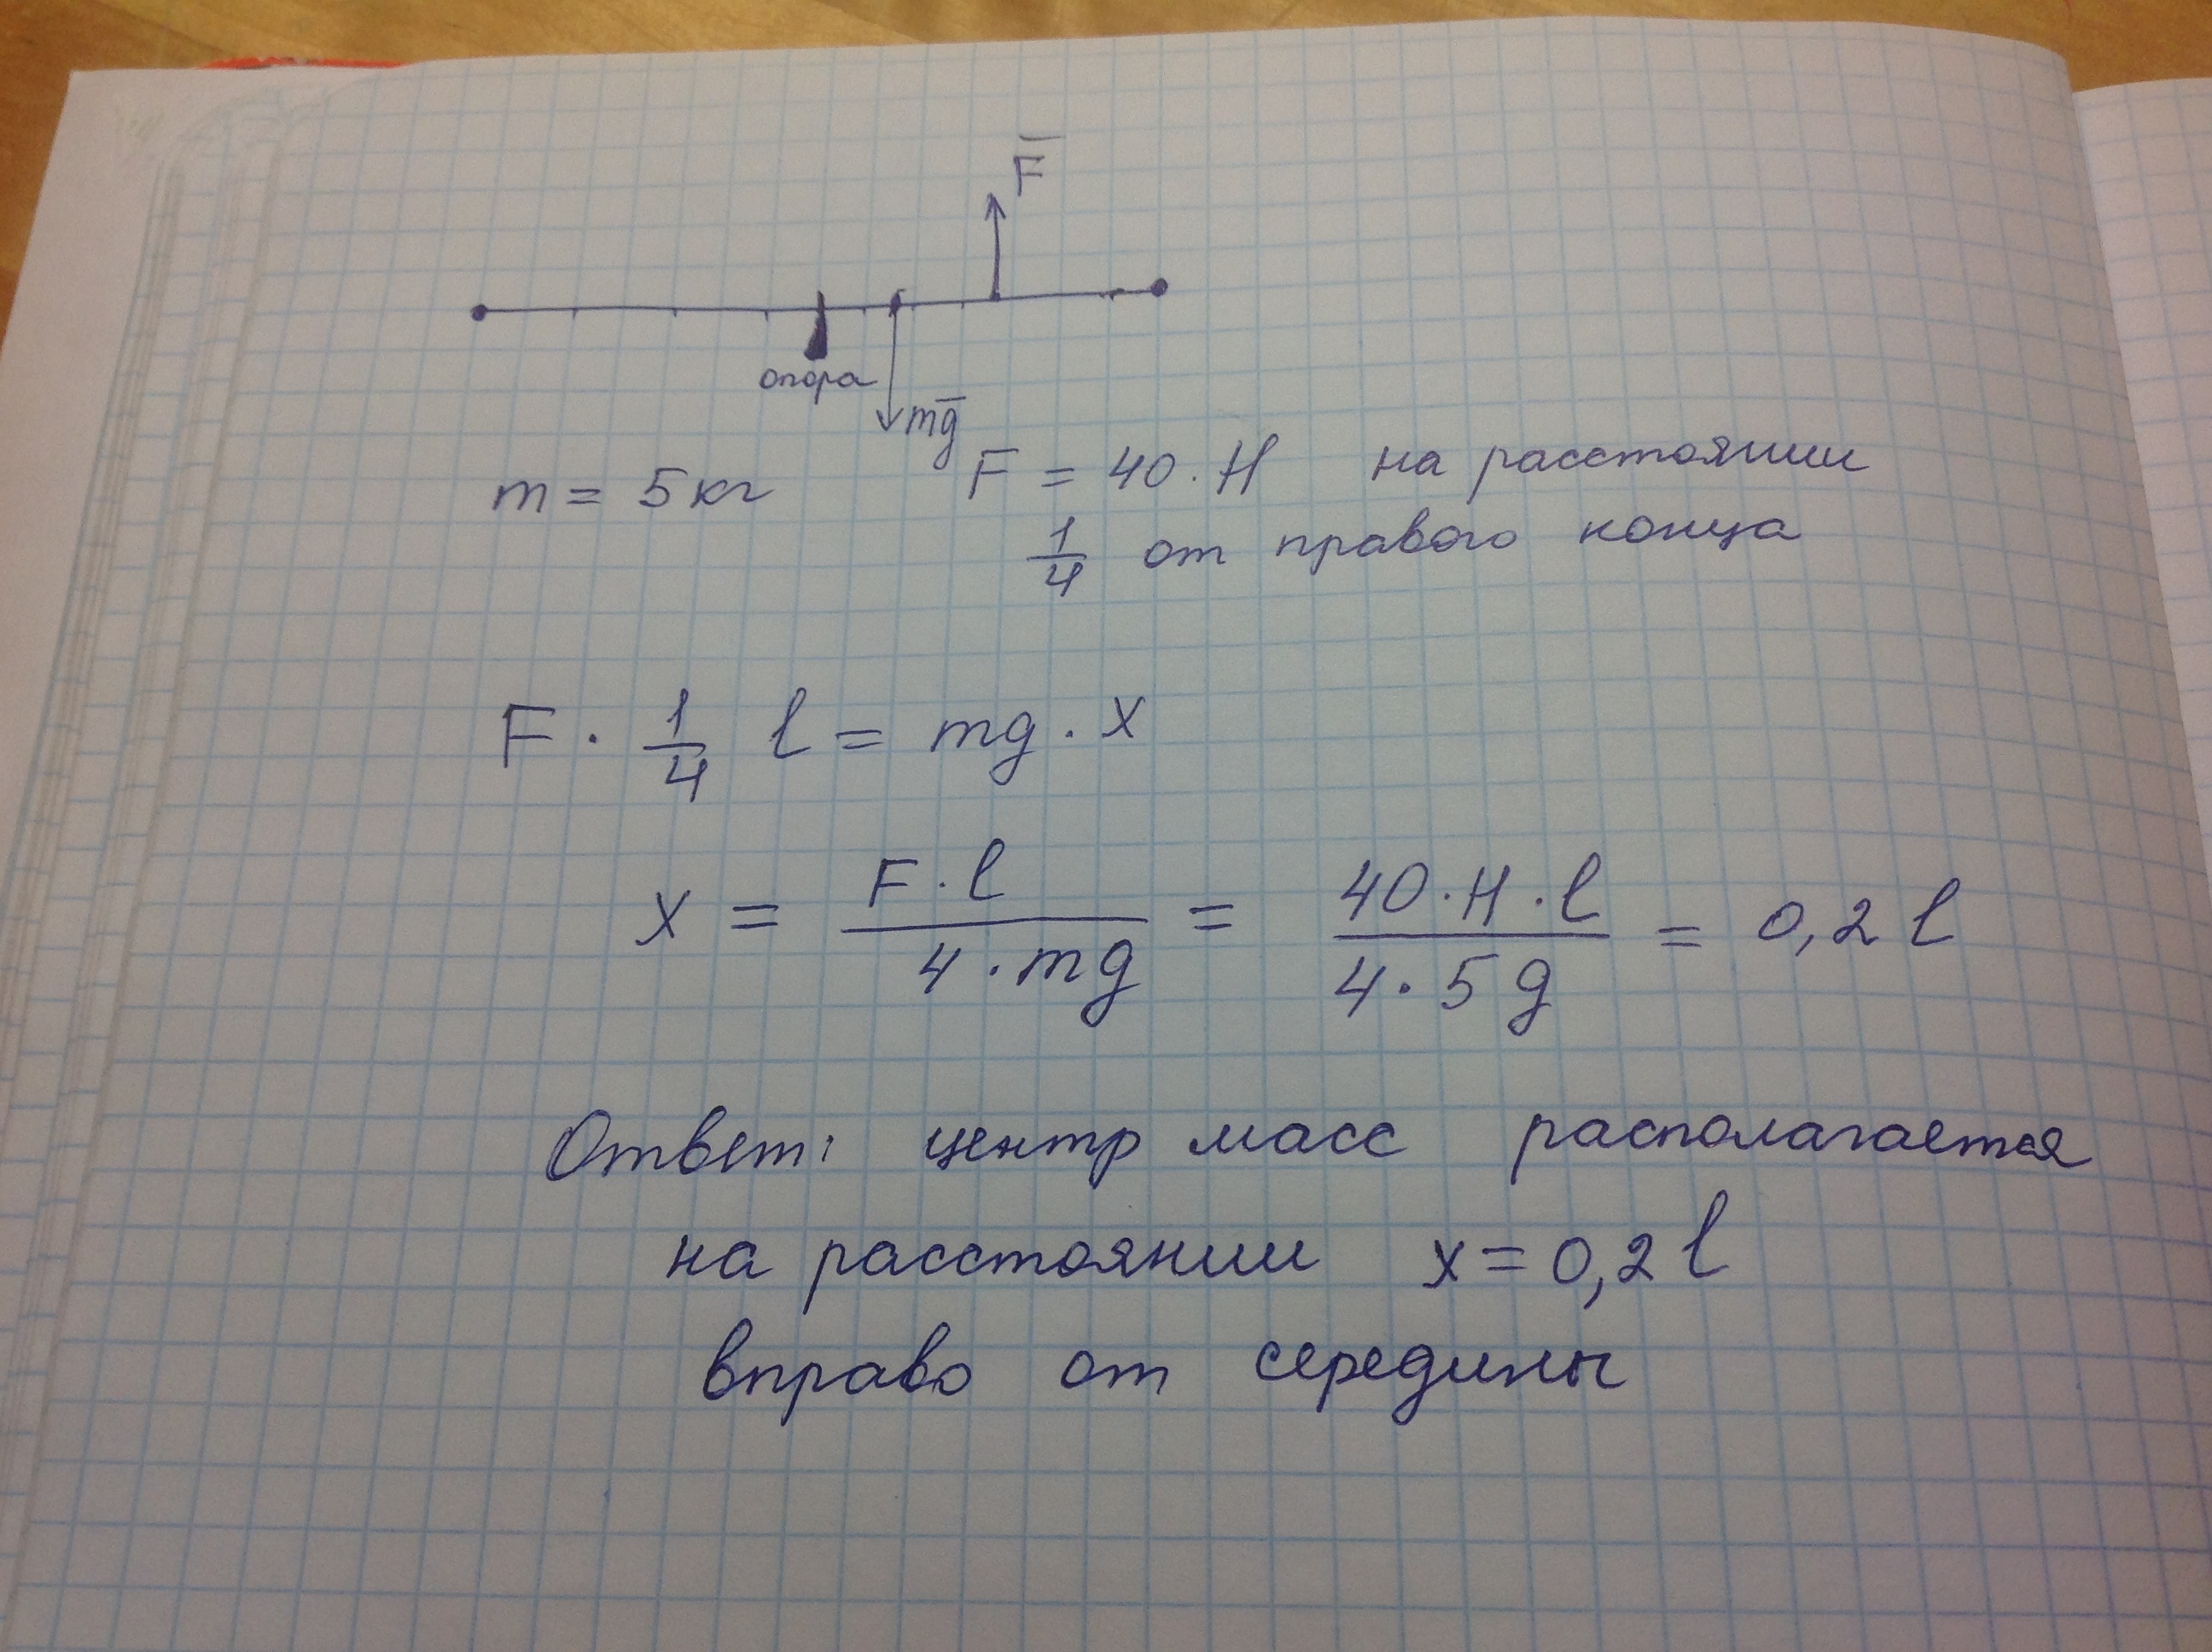 F̅
опора
mg̅
m = 5 кг
F = 40 · Н на расстоянии
1/4 от правого конца
F · 1/4 l = mg · x
x = F · l / 4 · mg = 40 · Н · l / 4 · 5 g = 0,2 l
Ответ: центр масс располагается
на расстоянии x = 0,2 l
вправо от середины